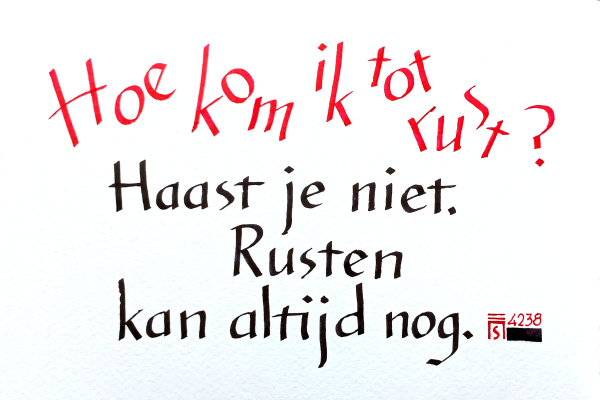 Hoe kom ik tot rust?
Haast je niet.
Rusten
kan altijd nog.
4238